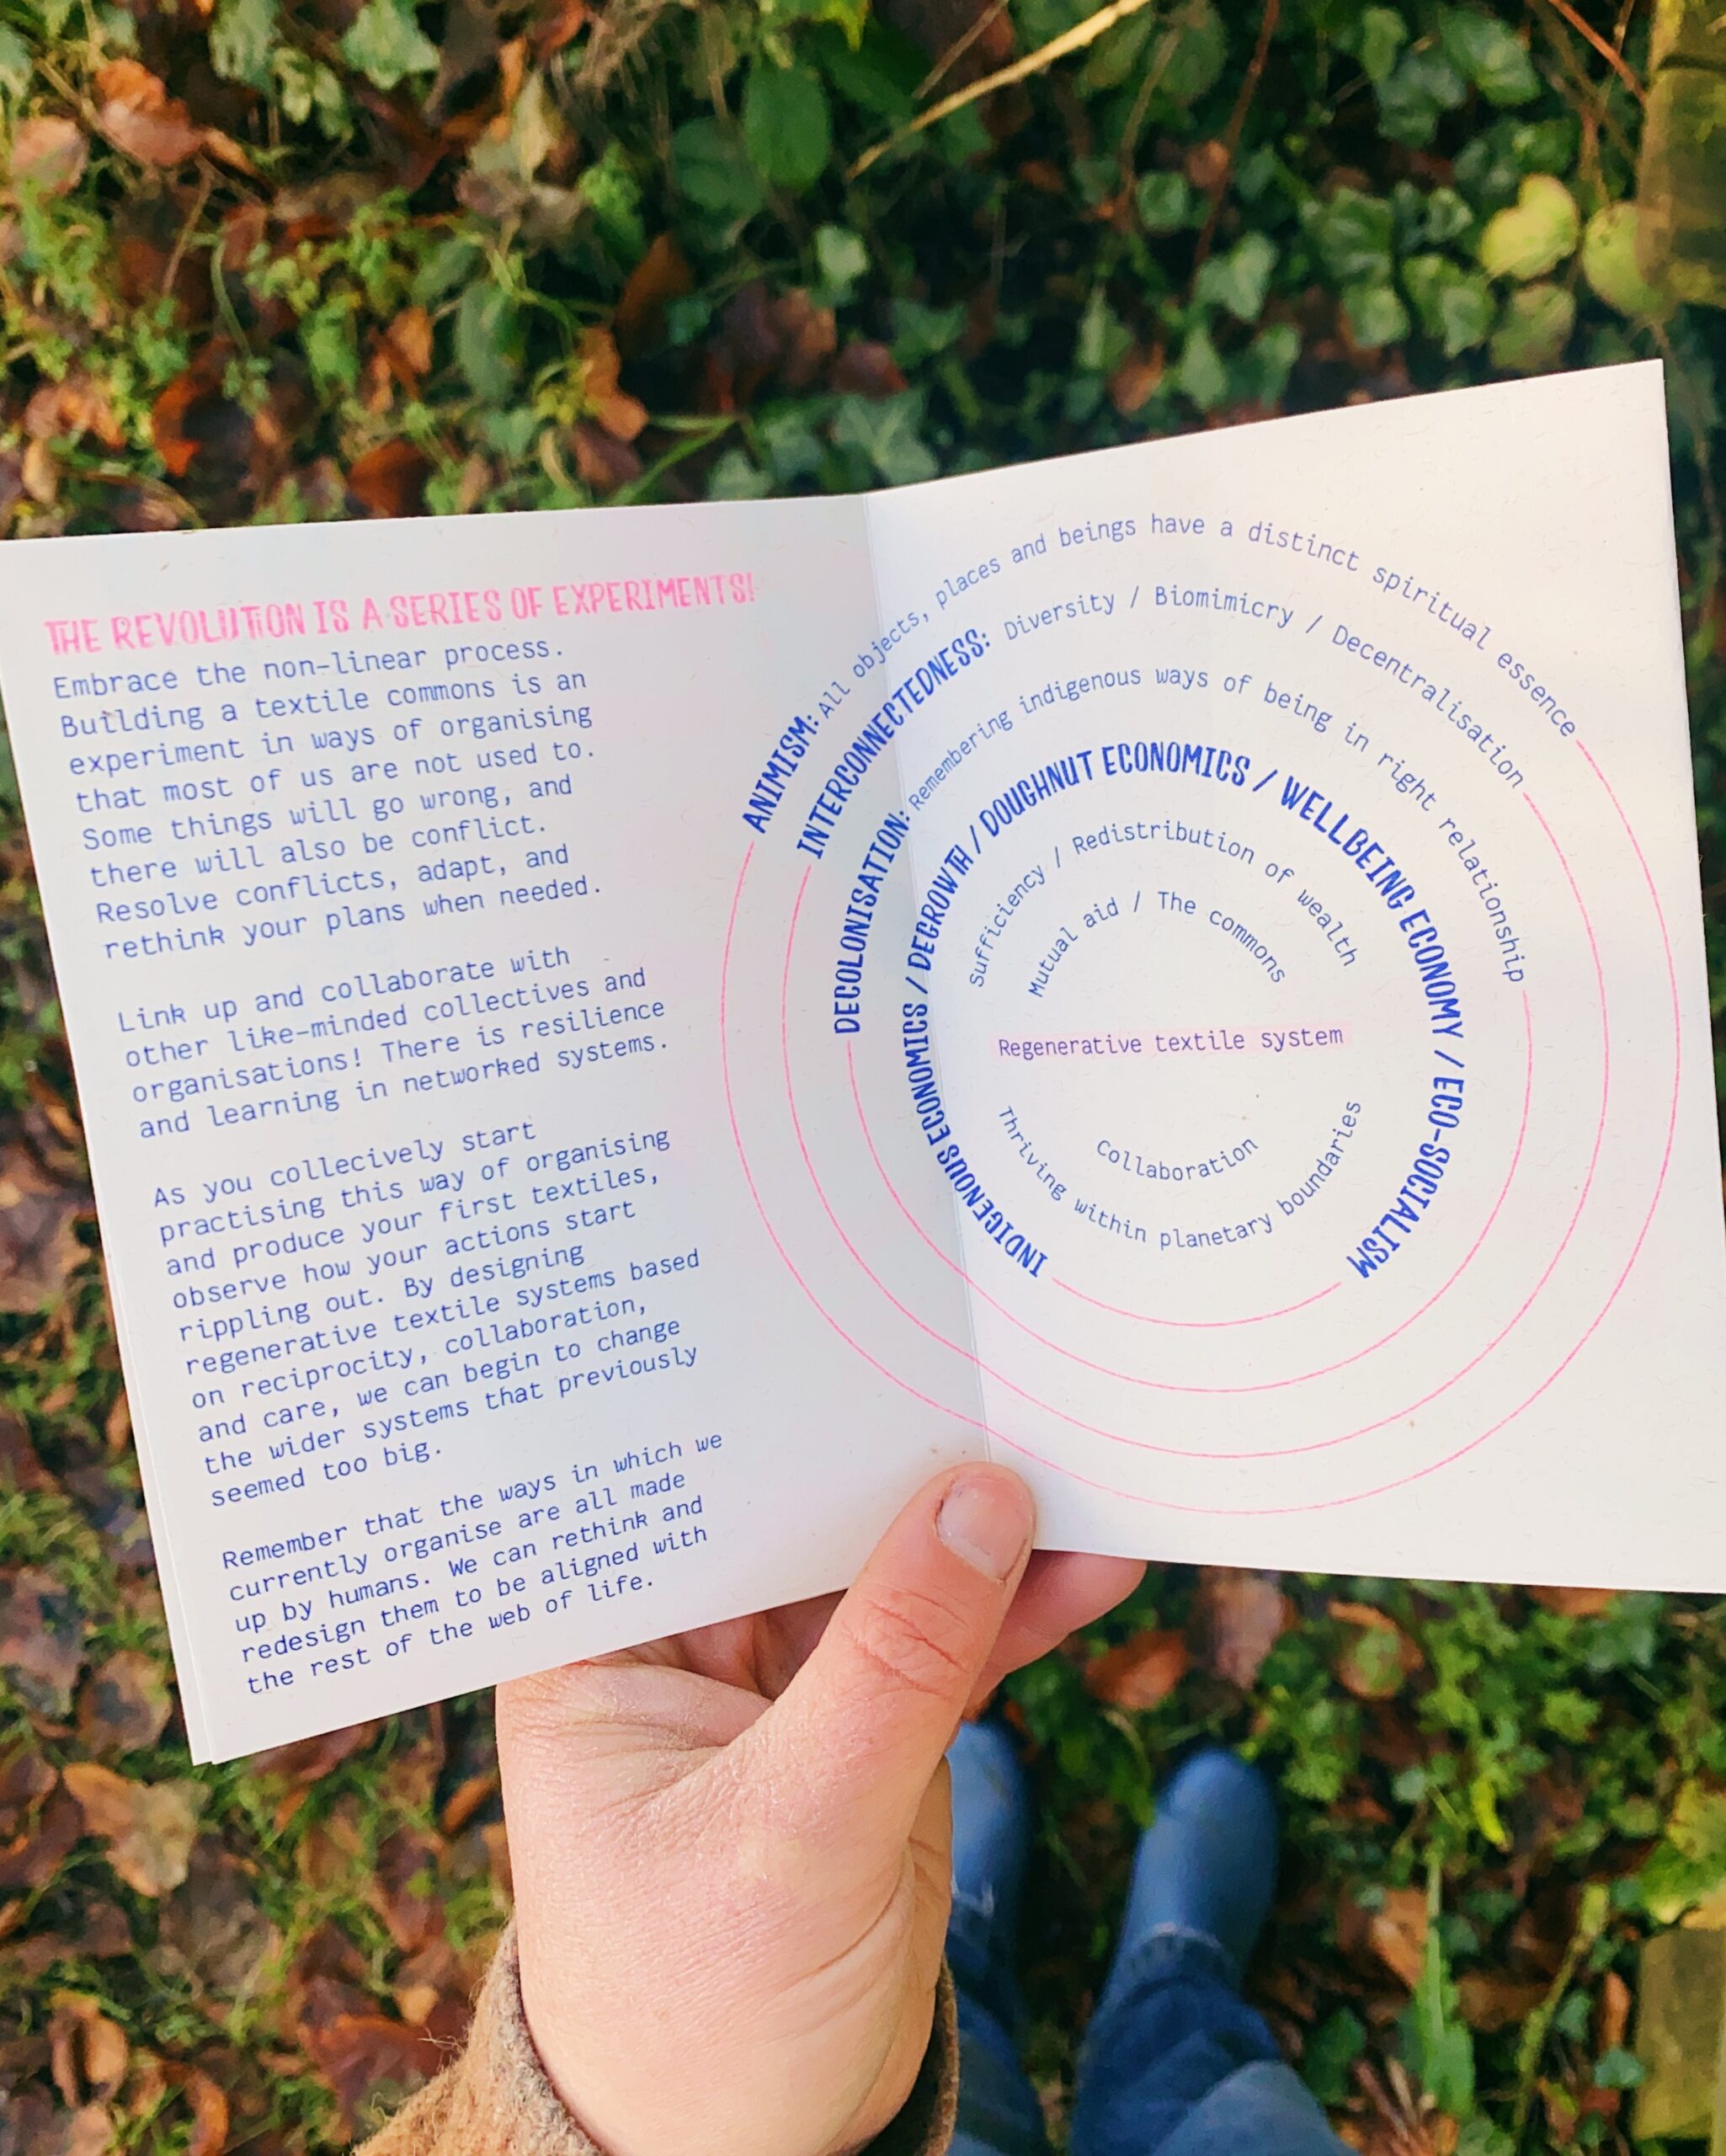 THE REVOLUTION IS A SERIES OF EXPERIMENTS!
Embrace the non-linear process.
Building a textile commons is an
experiment in ways of organising
that most of us are not used to.
Some things will go wrong, and
there will also be conflict.
Resolve conflicts, adapt, and
rethink your plans when needed.
Link up and collaborate with
other like-minded collectives and
organisations! There is resilience
and learning in networked systems.
As you collecively start
practising this way of organising
and produce your first textiles,
observe how your actions start
rippling out. By designing
regenerative textile systems based
on reciprocity, collaboration,
and care, we can begin to change
the wider systems that previously
seemed too big.
Remember that the ways in which we
currently organise are all made
up by humans. We can rethink and
redesign them to be aligned with
the rest of the web of life.
ANIMISM: All objects, places and beings have a distinct spiritual essence
INTERCONNECTEDNESS: Diversity / Biomimicry / Decentralisation
DECOLONISATION: Remembering indigenous ways of being in right relationship
INDIGENOUS ECONOMICS / DEGROWTH / DOUGHNUT ECONOMICS / WELLBEING ECONOMY / ECO-SOCIALISM
Sufficiency / Redistribution of wealth
Mutual aid / The commons
Regenerative textile system
Collaboration
Thriving within planetary boundaries